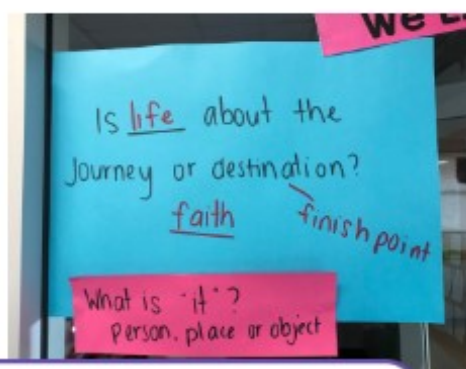 We
Is life about the
Journey or destination?
faith
finish point
What is "it"?
Person, place or object